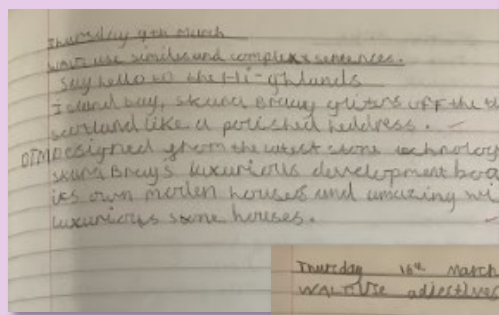 Thursday 9th March
WALT use similes and complex sentences.
Say hello to the Hi-ghlands
Island bay, skara Braay glitors off the
scotland like a polished heddress.
DTM Designed from the latest stone technology
skara Bray's luxurious development boa
its own morlen houses and amazing
luxurious stone houses.
Thursday 16th March
WALT use adjectives